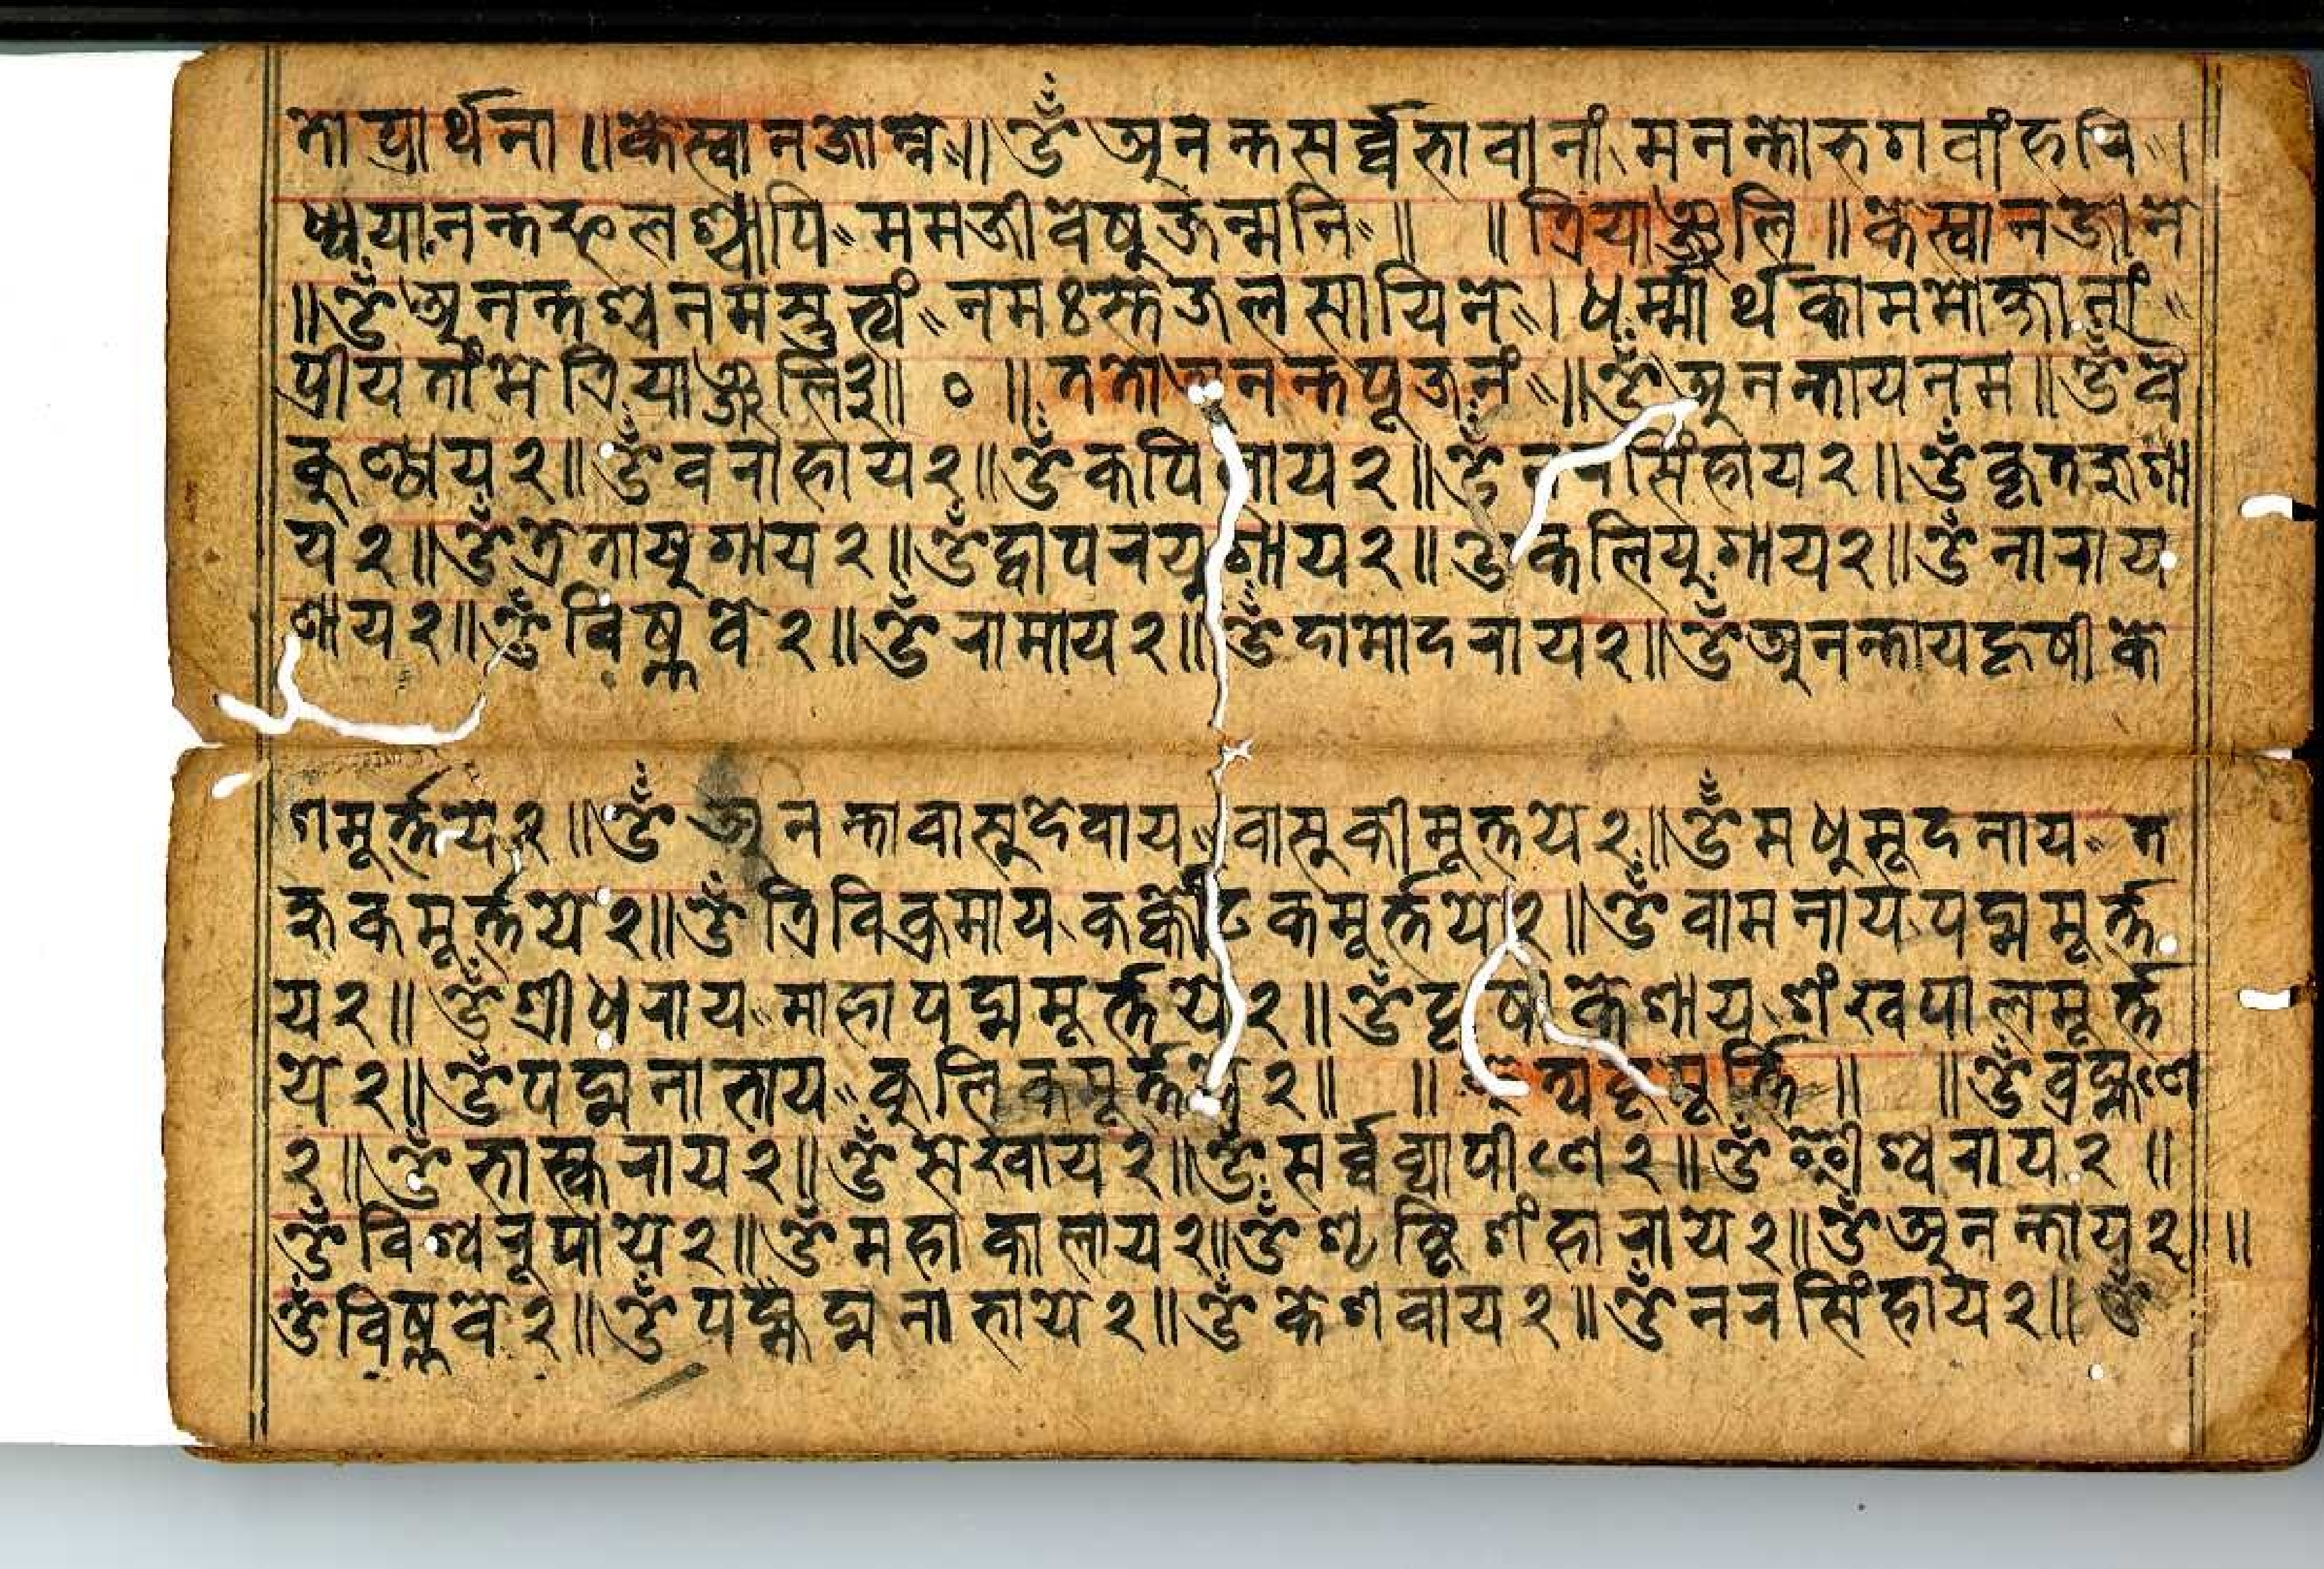 तो प्रार्थना ॥ केस्वानजोन्न ॥ ॐ अनन्तसर्व्वभावानां मनन्तो भगवांहरि ।
ध्यायानन्तफलश्चापि ममजीवेषूजन्मनि ॥ ॥ त्रियाञ्जलि ॥ केस्वानजोन
॥ ॐ अनन्तश्च नमस्तुत्यं नमःस्ते जलसायिने । धर्म्मार्थकाममोक्षानां
प्रीयतां मे त्रियाञ्जलि३॥ ० ॥ ततो अनन्तपूजनं ॥ ॐ अनन्तायनम ॥ ॐ वे
कुण्ठाय२॥ ॐ वराहाय२॥ ॐ कपिलाय२॥ ॐ नरसिंहाय२॥ ॐ कृत
य२॥ ॐ त्रेतायूगाय२॥ ॐ द्वापरयूगाय२॥ ॐ कलियूगाय२॥ ॐ नाराय
णाय२॥ ॐ विष्णुवे२॥ ॐ रामाय२॥ ॐ दामोदराय२॥ ॐ अनन्तायहृषीके
शमूर्त्तये२॥ ॐ अनन्तावासुदेवाय वासुकीमूर्त्तये२॥ ॐ मधुसूदनाय त
क्षकमूर्त्तये२॥ ॐ त्रिविक्रमाय कर्क्कोटकमूर्त्तये२॥ ॐ वामनाय पद्ममूर्त्त
य२॥ ॐ श्रीधराय माहापद्ममूर्त्तये२॥ ॐ हृषीकेशाय शंखपालमूर्त्त
ये२॥ ॐ पद्मनाभाय कूलिकमूर्त्तये२॥ ॥ ॥ ॥ ॐ ब्रह्मणे
२॥ ॐ भास्कराय२॥ ॐ सेखाय२॥ ॐ सर्व्वव्यापीणे२॥ ॐ ईश्वराय२॥
ॐ विश्वरूपाये२॥ ॐ महाकालाय२॥ ॐ शृष्टिशंहाराये२॥ ॐ अनन्ताय२॥
ॐ विष्णुवे२॥ ॐ पद्मद्मनाभाये२॥ ॐ केशवाय२॥ ॐ नरसिंहाय२॥ ॐ